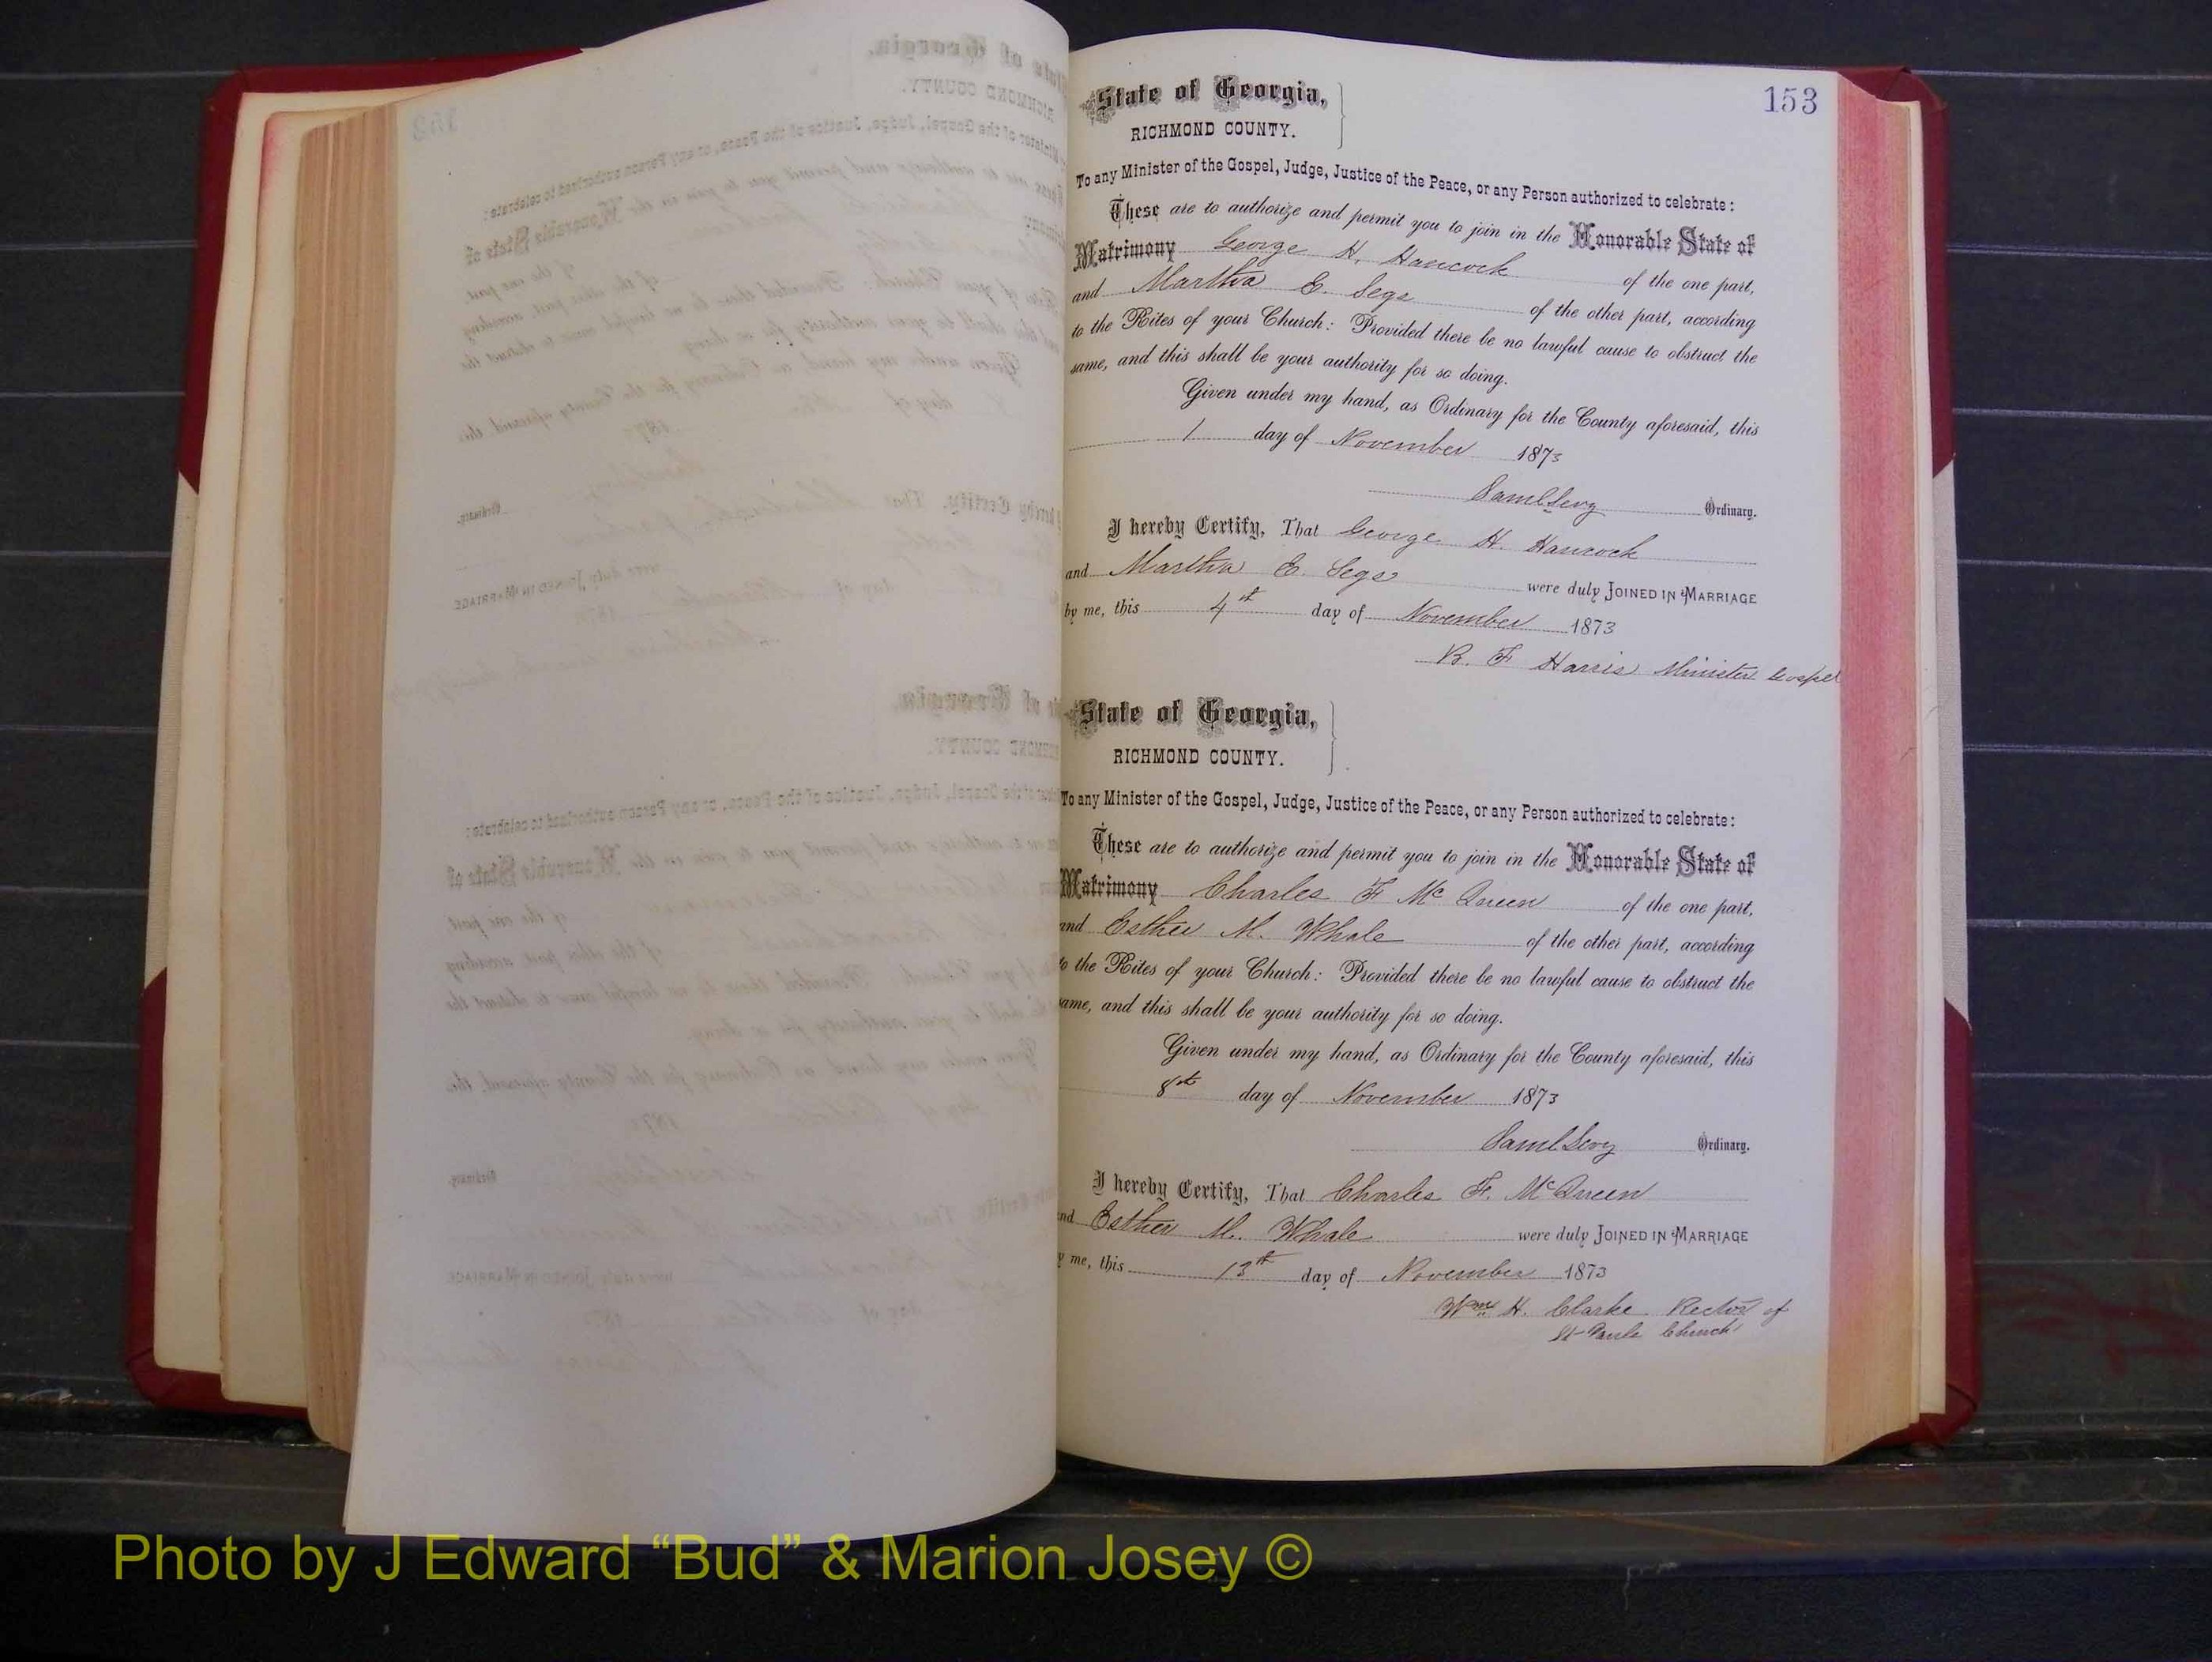 153
State of Georgia,
RICHMOND COUNTY.
To any Minister of the Gospel, Judge, Justice of the Peace, or any Person authorized to celebrate:
These are to authorize and permit you to join in the Honorable State of
Matrimony George H. Hancock of the one part,
and Martha E. Segs of the other part, according
to the Rites of your Church: Provided there be no lawful cause to obstruct the
same, and this shall be your authority for so doing.
Given under my hand, as Ordinary for the County aforesaid, this
1 day of November 1873
Saml Levy Ordinary.
I hereby Certify, That George H. Hancock
and Martha E. Segs were duly JOINED IN MARRIAGE
by me, this 4th day of November 1873
R. F Harris Minister Gospel
State of Georgia,
RICHMOND COUNTY.
To any Minister of the Gospel, Judge, Justice of the Peace, or any Person authorized to celebrate:
These are to authorize and permit you to join in the Honorable State of
Matrimony Charles F McQueen of the one part,
and Esther M. Whale of the other part, according
to the Rites of your Church: Provided there be no lawful cause to obstruct the
same, and this shall be your authority for so doing.
Given under my hand, as Ordinary for the County aforesaid, this
8th day of November 1873
Saml Levy Ordinary.
I hereby Certify, That Charles F. McQueen
and Esther M. Whale were duly JOINED IN MARRIAGE
by me, this 13th day of November 1873
Wm H. Clarke Rector of
St Pauls Church
Photo by J Edward “Bud” & Marion Josey ©